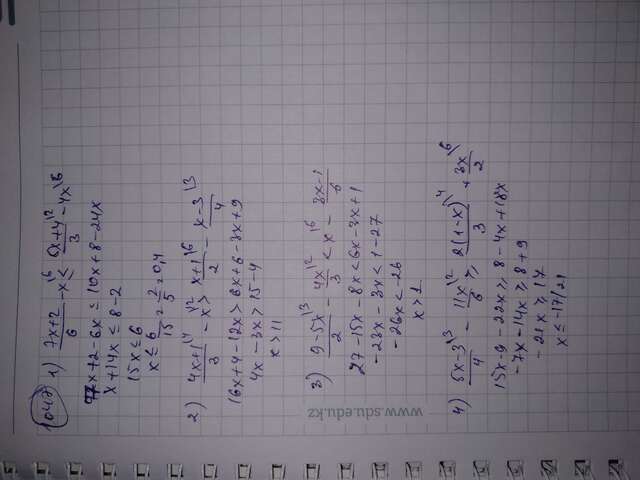 1047
1) (7x+2)/6 \6 - x \6 ≤ (5x+4)/3 \2 - 4x \6
7x+2-6x ≤ 10x+8-24x
x+14x ≤ 8-2
15x ≤ 6
x ≤ 6/15 = 2/5 = 0,4
2) (4x+1)/3 \4 - x \12 > (x+1)/2 \6 - (x-3)/4 \3
16x+4-12x > 6x+6-3x+9
4x-3x > 15-4
x > 11
3) (9-5x)/2 \3 - 4x/3 \2 < x \6 - (3x-1)/6
27-15x-8x < 6x-3x+1
-23x-3x < 1-27
-26x < -26
x > 1
4) (5x-3)/4 \3 - 11x/6 \2 ≥ 2(1-x)/3 \4 + 3x/2 \6
15x-9-22x ≥ 8-4x+18x
-7x-14x ≥ 8+9
-21x ≥ 17
x ≤ -17/21
www.sdu.edu.kz